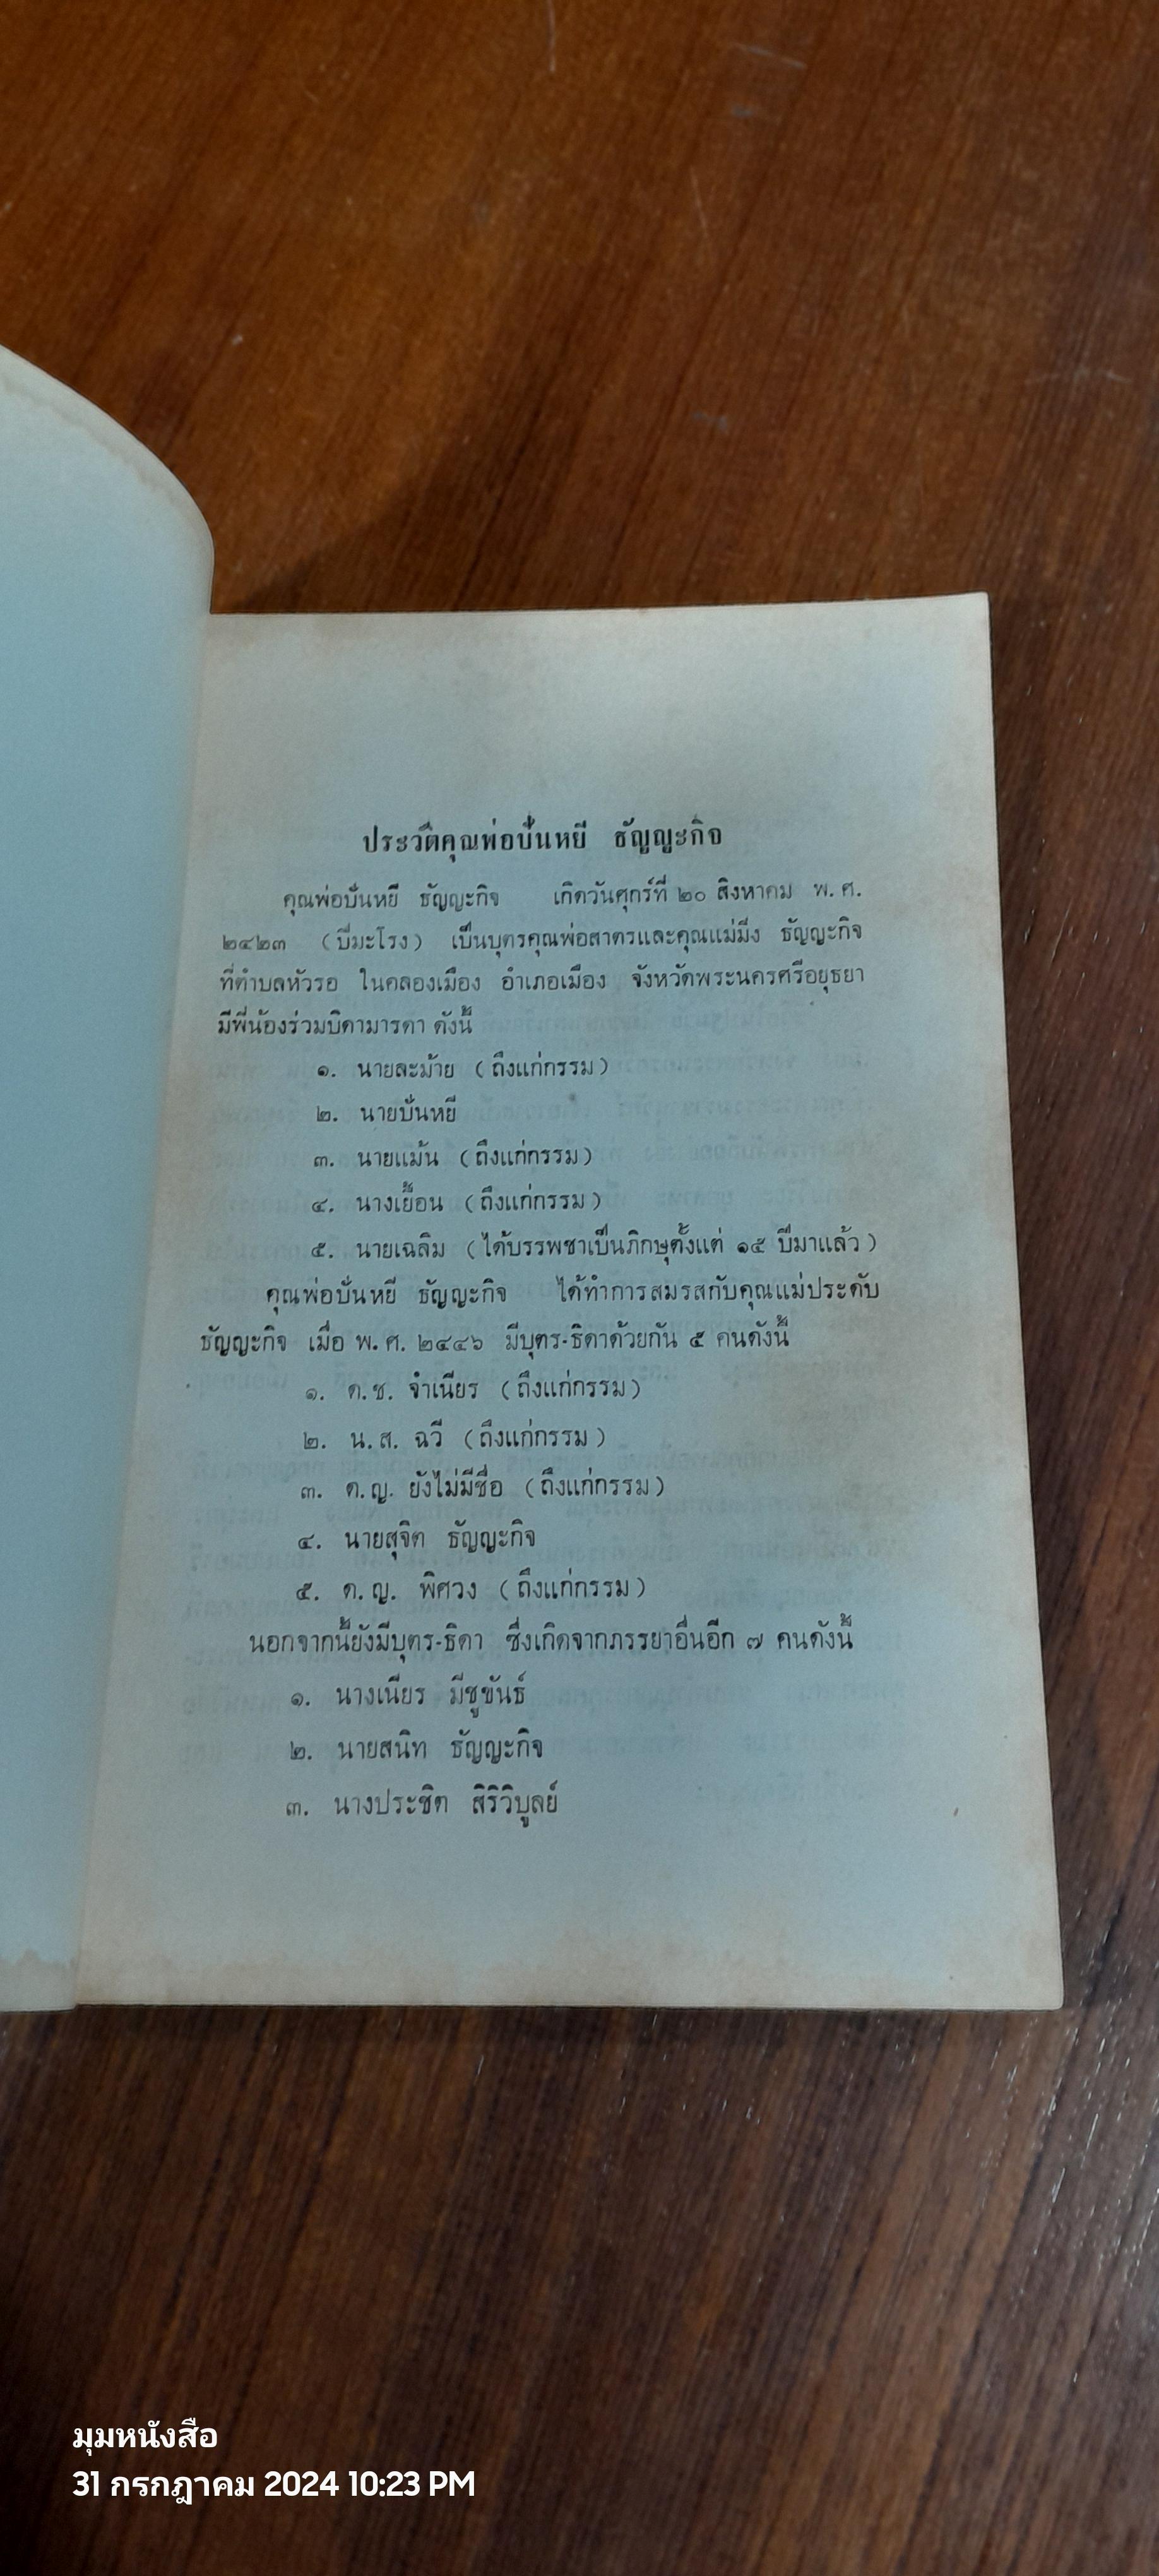 ประวัติคุณพ่อปั่นหยี ธัญญะกิจ
คุณพ่อปั่นหยี ธัญญะกิจ เกิดวันศุกร์ที่ ๒๐ สิงหาคม พ.ศ.
๒๔๒๓ (ปีมะโรง) เป็นบุตรคุณพ่อสาตรและคุณแม่มิ่ง ธัญญะกิจ
ที่ตำบลหัวรอ ในคลองเมือง อำเภอเมือง จังหวัดพระนครศรีอยุธยา
มีพี่น้องร่วมบิดามารดา ดังนี้
๑. นายละม้าย (ถึงแก่กรรม)
๒. นายปั่นหยี
๓. นายแม้น (ถึงแก่กรรม)
๔. นางเยื้อน (ถึงแก่กรรม)
๕. นายเฉลิม (ได้บรรพชาเป็นภิกษุตั้งแต่ ๑๕ ปีมาแล้ว)
คุณพ่อปั่นหยี ธัญญะกิจ ได้ทำการสมรสกับคุณแม่ประดับ
ธัญญะกิจ เมื่อ พ.ศ. ๒๔๔๖ มีบุตร-ธิดาด้วยกัน ๕ คนดังนี้
๑. ด.ช. จำเนียร (ถึงแก่กรรม)
๒. น.ส. ฉวี (ถึงแก่กรรม)
๓. ด.ญ. ยังไม่มีชื่อ (ถึงแก่กรรม)
๔. นายสุจิต ธัญญะกิจ
๕. ด.ญ. พิศวง (ถึงแก่กรรม)
นอกจากนี้ยังมีบุตร-ธิดา ซึ่งเกิดจากภรรยาอื่นอีก ๗ คนดังนี้
๑. นางเนียร มีชูขันธ์
๒. นายสนิท ธัญญะกิจ
๓. นางประชิต สิริวิบูลย์
มุมหนังสือ
31 กรกฎาคม 2024 10:23 PM